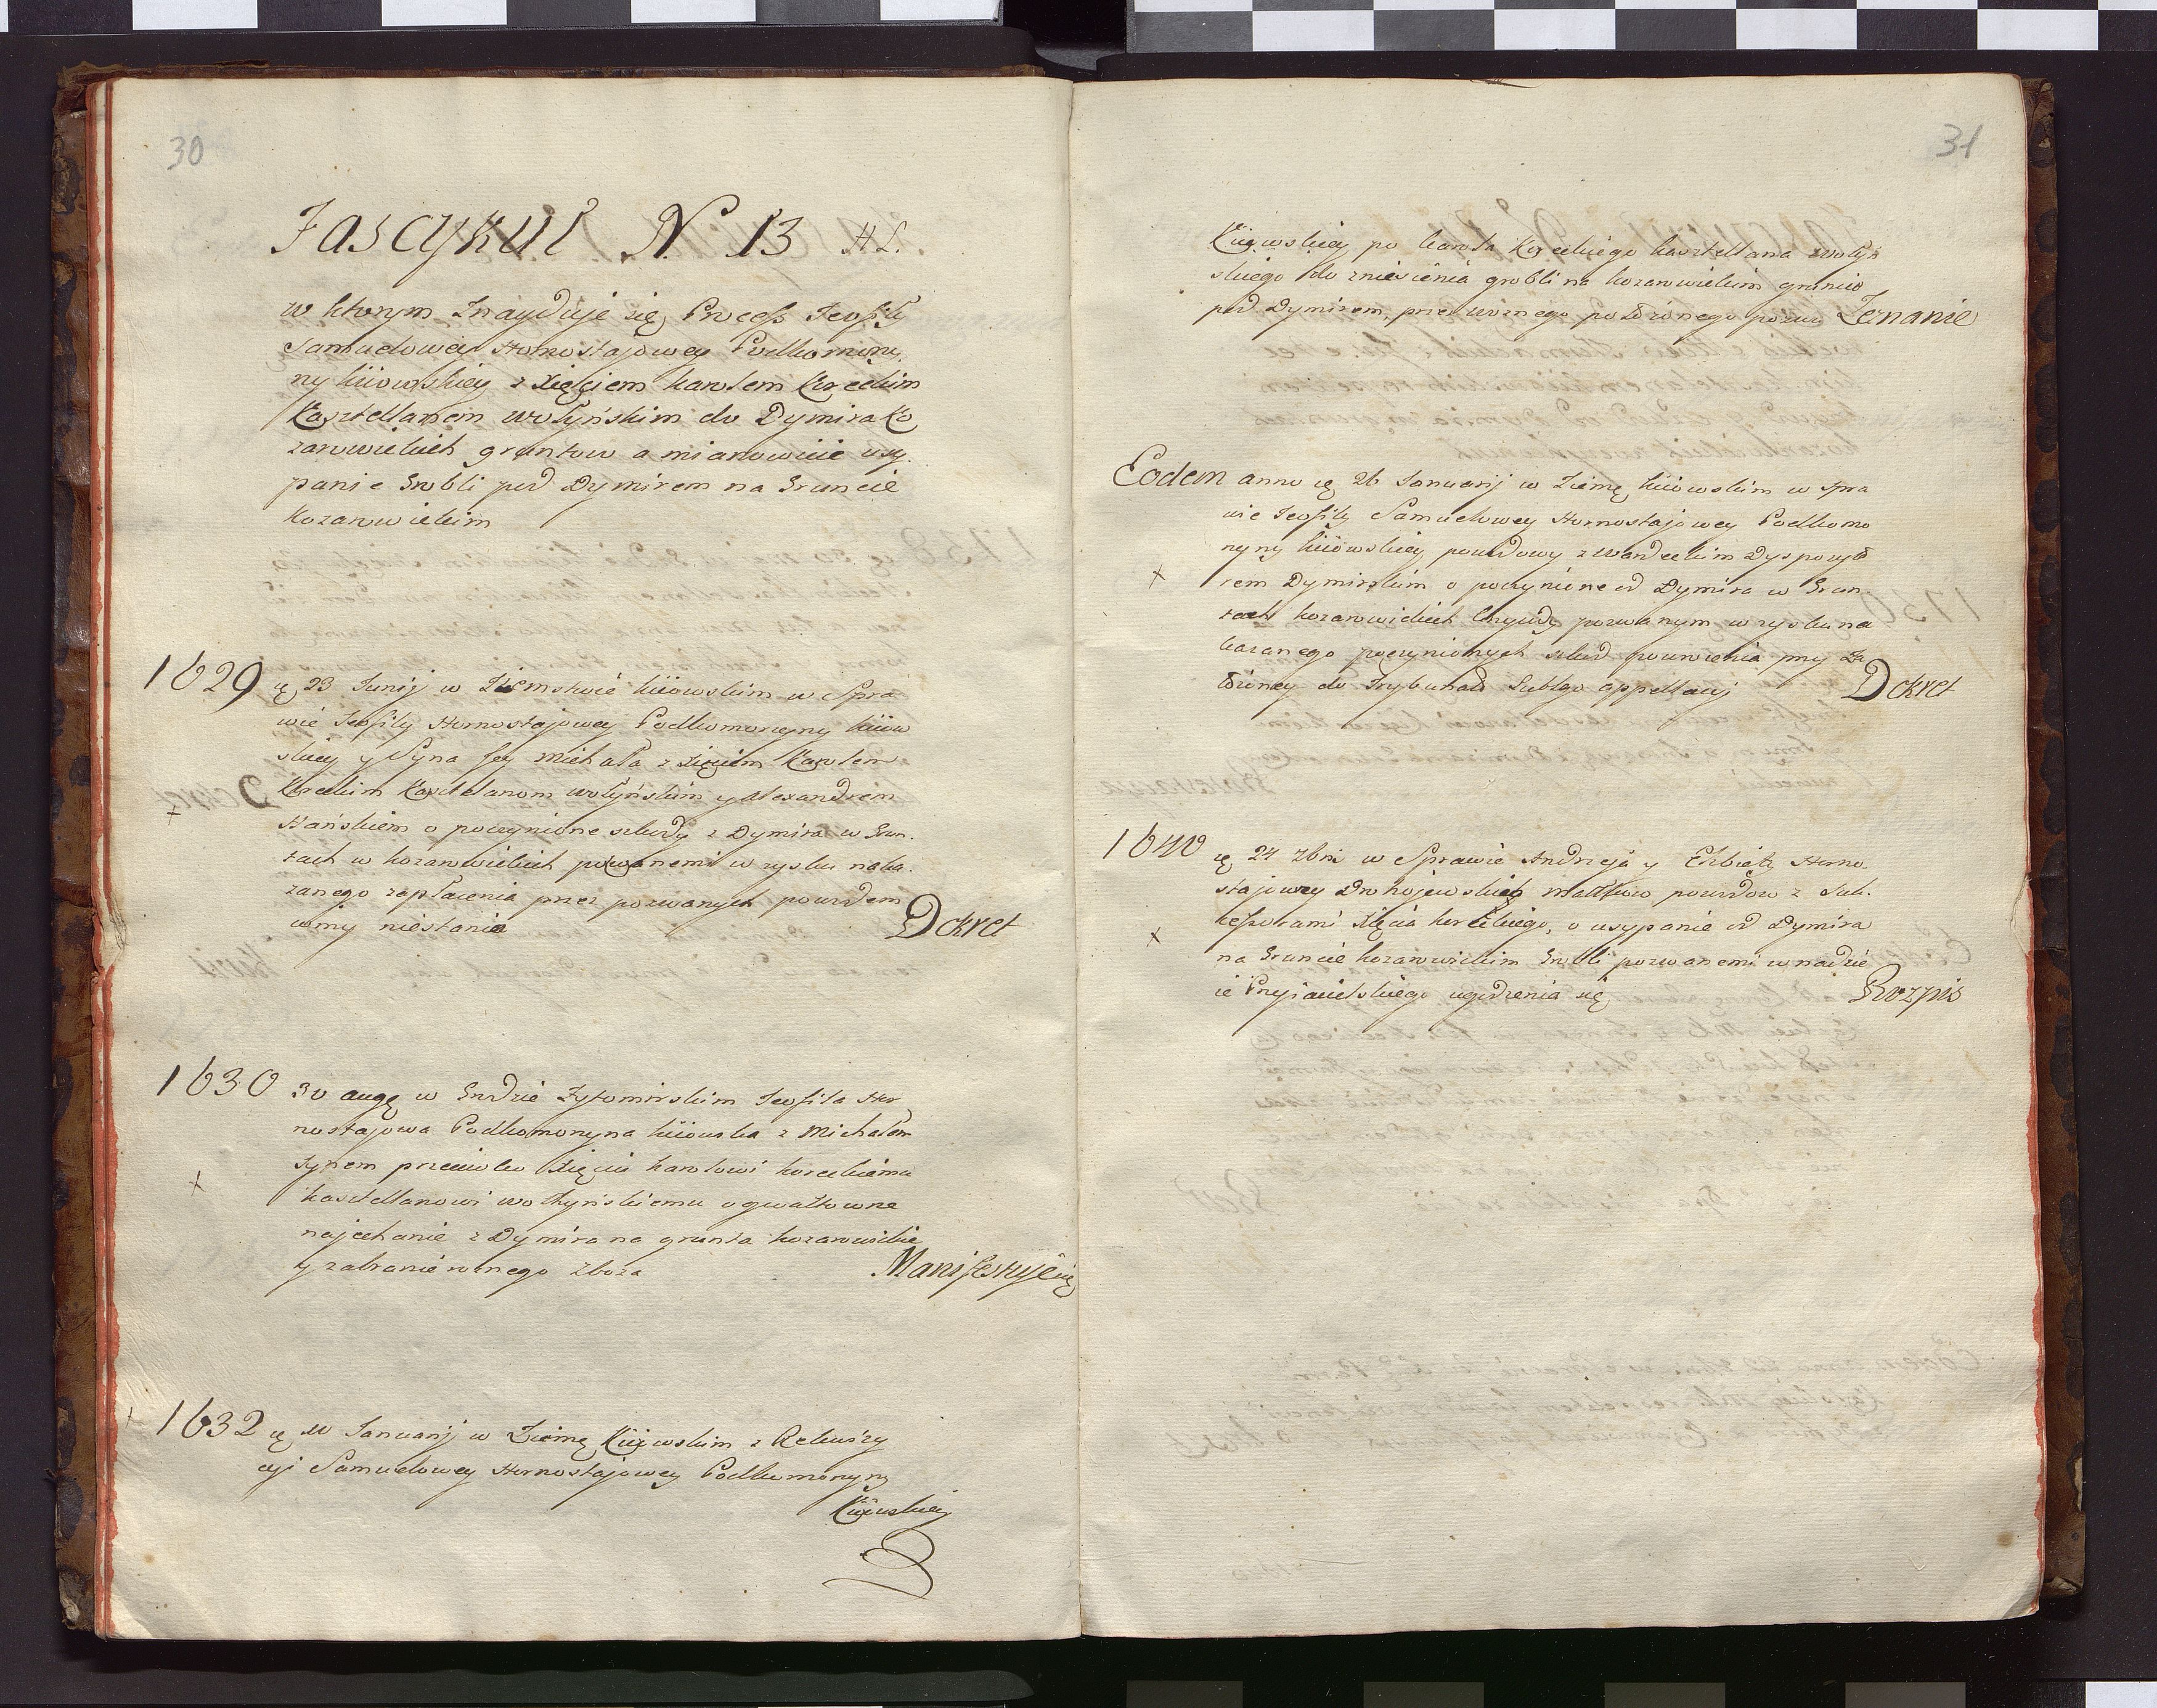 30
Fascykuł N. 13 H L.
w ktorym Znayduje się Process Teofily
Samuelowey Hornostajowey Podkomorzy
ny kiiowskiey z xięciem karolem Koreckim
Kasztellanem wołyńskim do Dymira Ko
zarowickich gruntow a mianowicie usy.
panie Grobli pod Dymirem na Gruncie
Kozarowickim
1629 ię 23 Junij w Ziemstwie kiiowskim w Spra
wie Teofily Hornostajowey Podkomorzyny kiiow
skiey y Syna Jey Michała z xięciem Karolem
Koreckim Kasztelanom wołyńskim y Alexandrem
Hańskiem o poczynione szkody z Dymira w Grun.
tach w kozarowickich pozwanemi w zysku naka.
zanego zapłacenia przez pozwanych powodem
winy niestania Dekret
1630 30 augę w Grodzie Zytomirskim Teofila Hor
nostajowa Podkomorzyna kiiowska z Michałem
Synem przeciwko xięciu karolowi koreckiemu
kasztellanowi wołhyńskiemu o gwałtowne
najechanie z Dymira na grunta kozarowickie
y zabranie rożnego zboża Manifestuje się
1632 ię Januarij w Ziemę Kiiowskim z Rekwizy
cyi Samuelowey Hornostajowey Podkomorzyny
Kiiowskiey
31
Kiiowskiey po karola Koreckiego kasztellana wołyń
skiego do zniesienia grobli na kozarowickim grunie
pod Dymirem, przez woznego położonego pozwu Zeznanie
Eodem anno ię 26 Januarij w Ziemę kiiowskim w spra
wie Teofily Samuelowey Hornostajowey Podkomo
rzyny kiiowskiey powodowy z Wandeckim Dyspozyto
rem Dymirskim o poczynione od Dymira w Grun.
tach kozarowickich krzywdy pozwanym w zysku na
kazanego poczynionych szkod powrocenia przy Za
łożoney do Trybunału Lublgo appellacyj Dekret
1640 ię 24 Xbris w Sprawie Andrzeja y Elzbiety Horno.
stajowey Drohojewskich małkow powodow z Suk.
cessorami xięcia koreckiego, o usypanie od Dymira
na Gruncie kozarowickim Grobli pozwanemi w nadzie
ie Przyiacielskiego ugodzenia się Rozpis